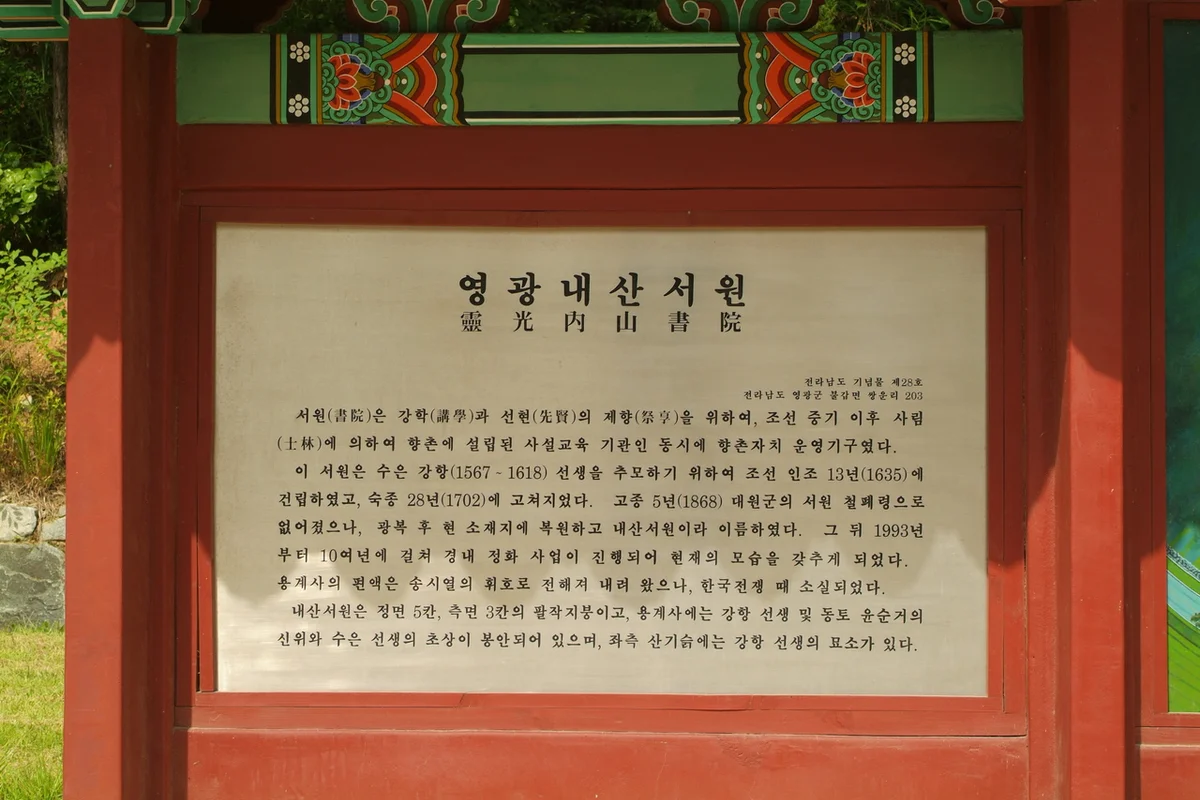 영광내산서원
靈光內山書院
전라남도 기념물 제28호
전라남도 영광군 불갑면 쌍운리 203
서원(書院)은 강학(講學)과 선현(先賢)의 제향(祭享)을 위하여, 조선 중기 이후 사림
(士林)에 의하여 향촌에 설립된 사설교육 기관인 동시에 향촌자치 운영기구였다.
이 서원은 수은 강항(1567~1618) 선생을 추모하기 위하여 조선 인조 13년(1635)에
건립하였고, 숙종 28년(1702)에 고쳐지었다. 고종 5년(1868) 대원군의 서원 철폐령으로
없어졌으나, 광복 후 현 소재지에 복원하고 내산서원이라 이름하였다. 그 뒤 1993년
부터 10여년에 걸쳐 경내 정화 사업이 진행되어 현재의 모습을 갖추게 되었다.
용계사의 편액은 송시열의 휘호로 전해져 내려 왔으나, 한국전쟁 때 소실되었다.
내산서원은 정면 5칸, 측면 3칸의 팔작지붕이고, 용계사에는 강항 선생 및 동토 윤순거의
신위와 수은 선생의 초상이 봉안되어 있으며, 좌측 산기슭에는 강항 선생의 묘소가 있다.